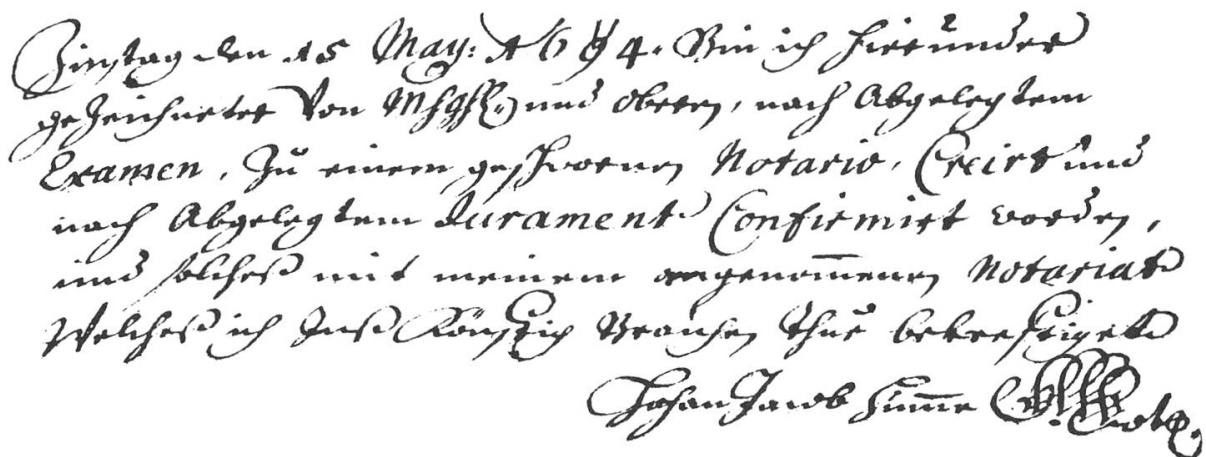 Zinstag den 15 May: 1694. Bin ich hierunder
gezeichneter Von MhgHL. und Oberen, nach Abgelegtem
Examen, Zu einem geschwornen Notario, Creirt und
nach Abgelegtem Jurament Confirmirt worden,
und solches mit meinem angenom̅enen Notariat
Welches ich Inß Könfftig Brauchen thue bekrefftiget
Johan Jacob